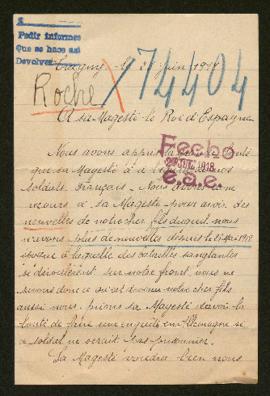 Pedir informes
Que se hace así
Devolver
74404
Roche
A sa Majesté le Roi d'Espagne
Nous avons appris la
que sa Majesté a
soldats français. Nous
recours à sa Majesté pour avoir des
nouvelles de notre cher fils duquel nous
n'avons plus de nouvelles depuis le 27 Mai 1918
époque à laquelle des batailles sanglantes
se déroulèrent sur notre front, nous ne
savons donc ce qu'est devenu notre cher fils
aussi nous prions sa Majesté d'avoir la
bonté de faire une enquête en Allemagne si
ce soldat ne serait pas prisonnier.
Sa Majesté voudra bien nous
Fecho
1918